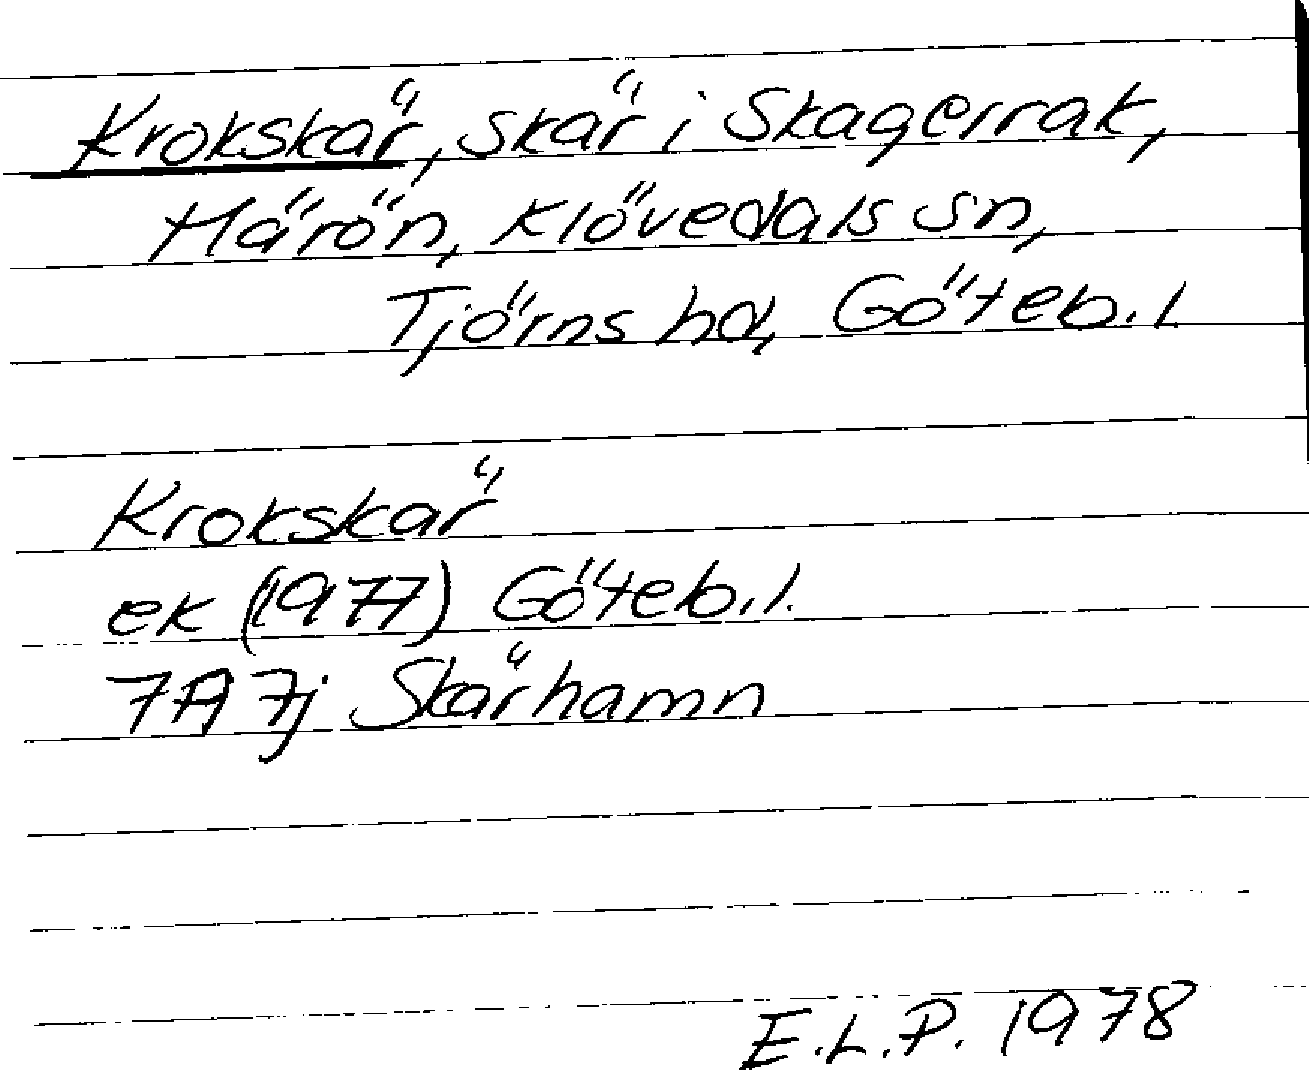 Krokskär, skär i Skagerrak,
Härön, Klövedals sn,
Tjörns hd, Göteb.l.
Krokskär
ek (1977) Göteb.l.
7A 7j Skärhamn
E.L.P. 1978